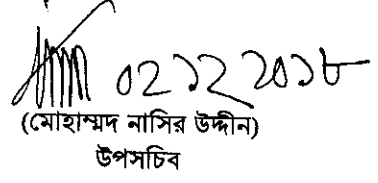 ০২ ১২ ২০১৮
(মোহাম্মদ নাসির উদ্দীন)
উপসচিব